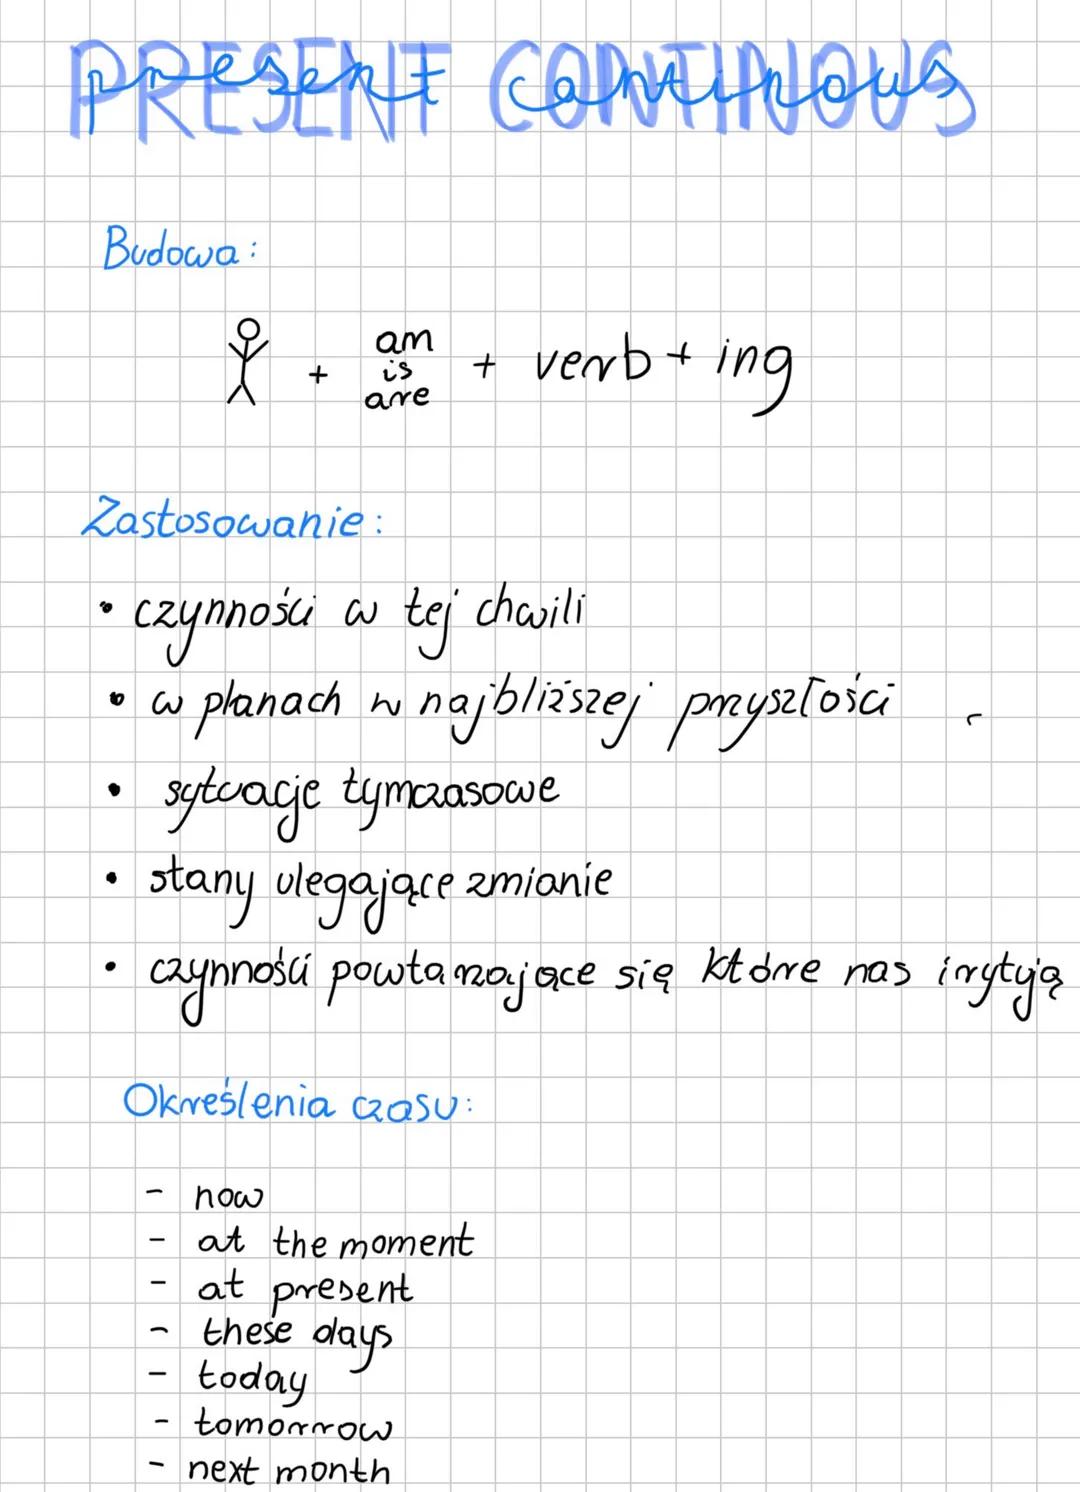 PRESENT CONTINOUS
present continous
Budowa:
+ am is are + verb + ing
Zastosowanie:
• czynności w tej chwili
• w planach w najbliższej przyszłości
• sytuacje tymczasowe
• stany ulegające zmianie
• czynności powtarzające się które nas irytyją
Określenia czasu:
- now
- at the moment
- at present
- these days
- today
- tomorrow
- next month